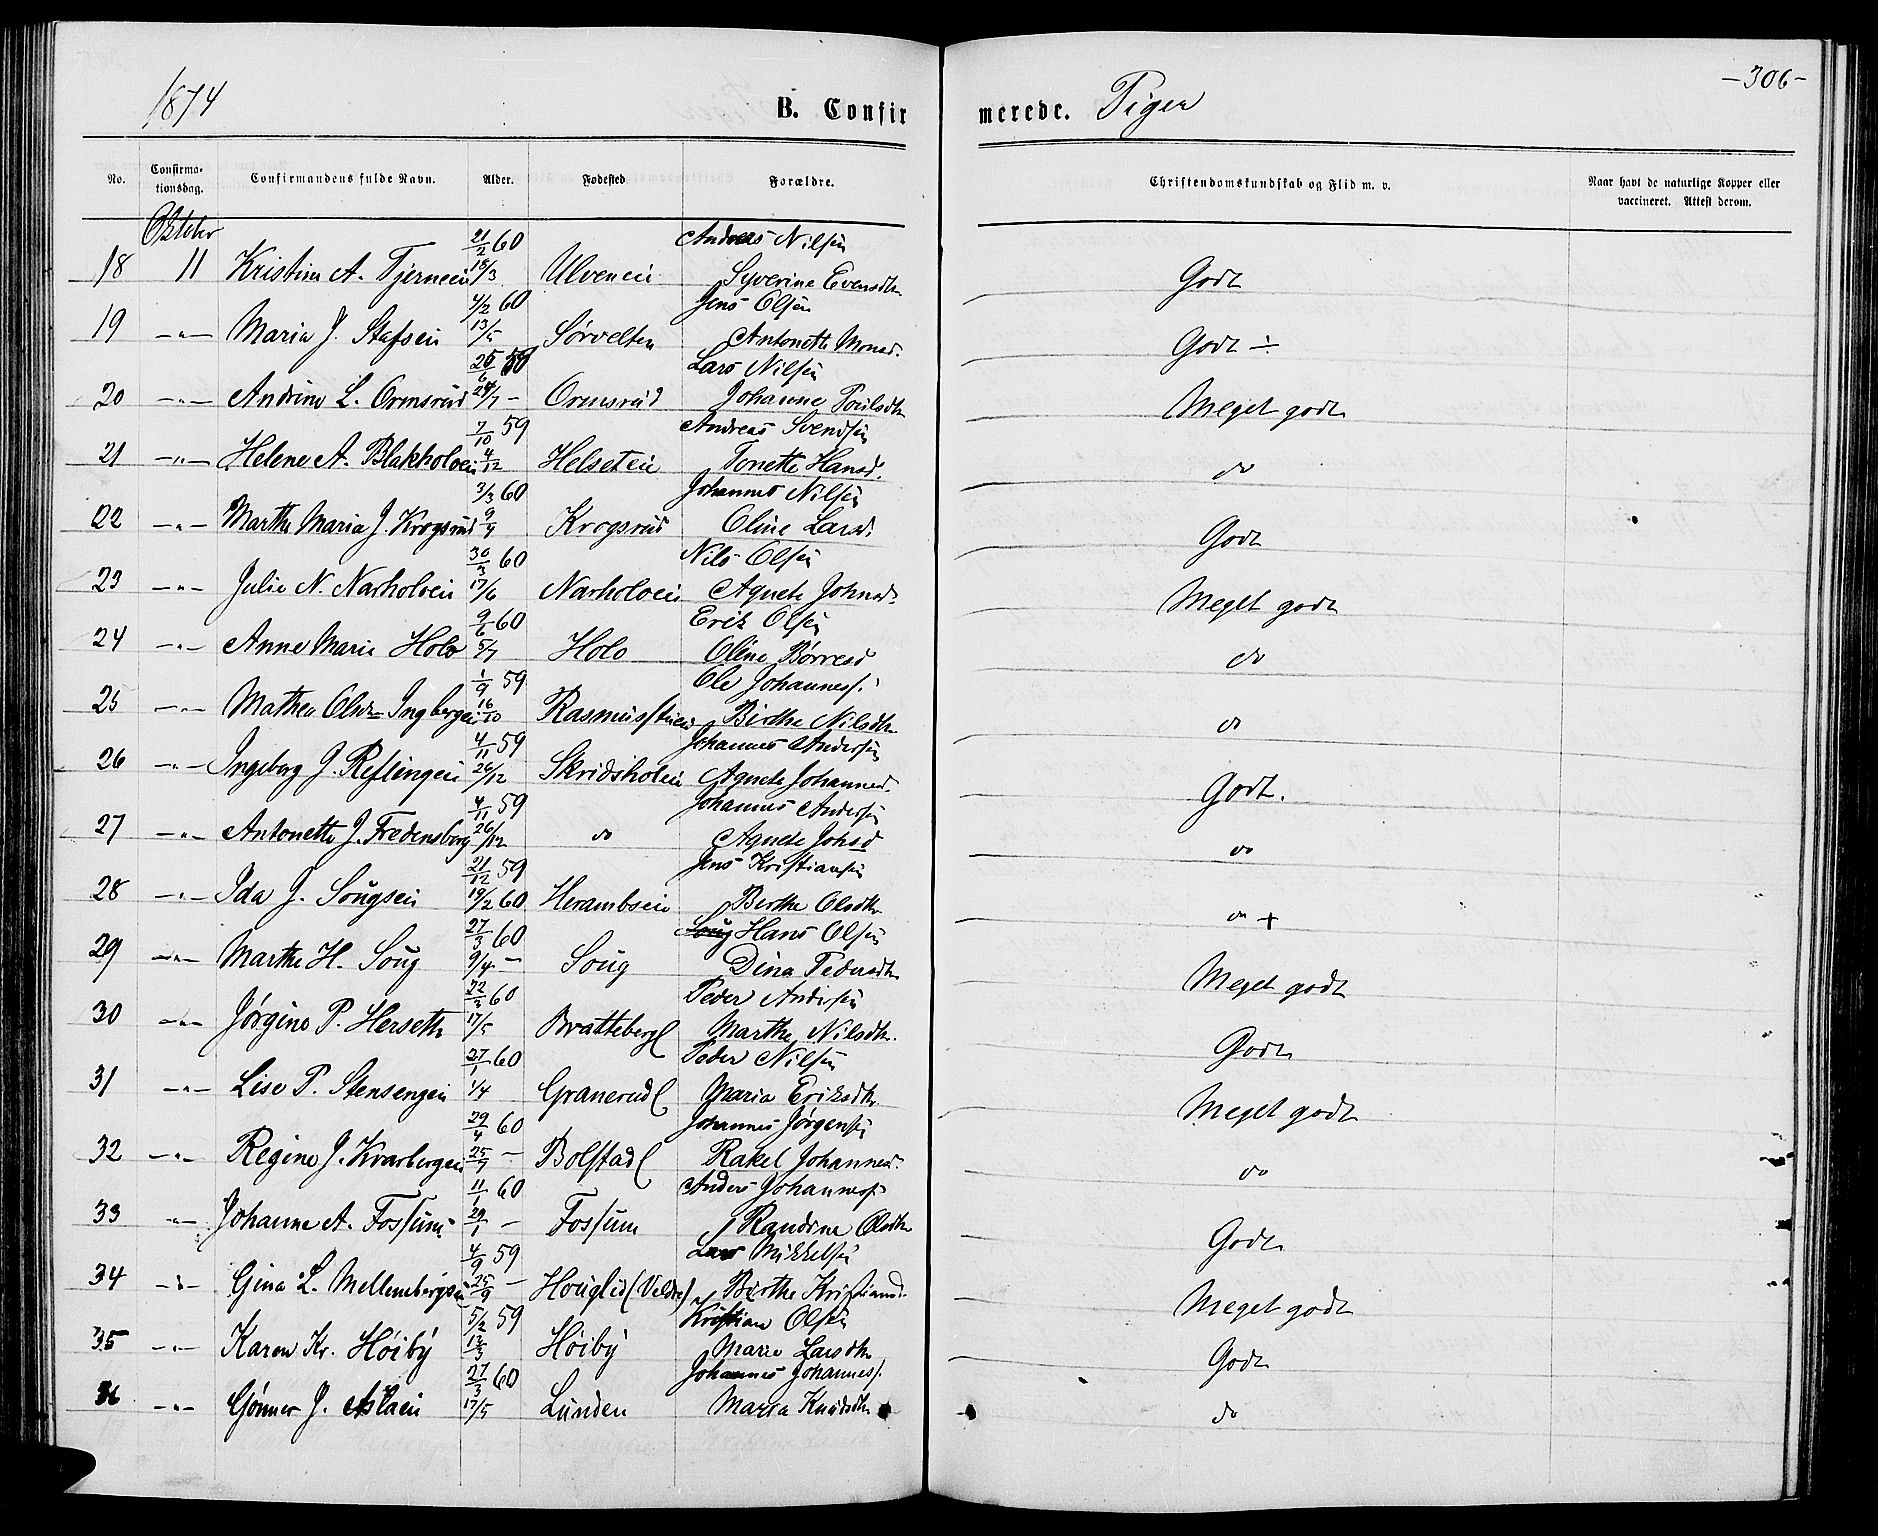 1874 B. Confirmerede. Piger -306-
No. Confirmationsdag. Confirmandens fulde Navn. Alder. Fødested Forældre. Christendomskundskab og Flid m. v. Naar havt de naturlige Kopper eller vaccineret. Attest derom.
Oktober 21/2 60 Andreas Nilsen
18 11 Kristine A. Tjerneien 18/3 Ulveneie Syverine Evensdtr. Godt
4/2 60 Jens Olsen
19 -"- Maria J. Stafseie 13/5 Sørvelten Antonette Monsd. Godt ÷
25/6 59 Lars Nilsen
20 -"- Andrine L. Ormsrud 24/7 - Ormsrud Johanne Poulsdtr Meget godt
7/10 59 Andreas Svendsen
21 -"- Helene A. Blakholveie 4/12 Helseteie Tonette Hansd. do
3/3 60 Johannes Nilsen
22 -"- Marthe Maria J. Krogsrud 9/4 Krogsrud Oline Larsd. Godt
30/3 60 Nils Olsen
23 -"- Julie N. Narholveie 17/6 Narholveie Agnete Johnsd. Meget godt
9/6 60 Erik Olsen
24 -"- Anne Marie Holo 5/7 Holo Oline Børresd do
1/9 59 Ole Johanness.
25 -"- Mathea Olsen Ingbergeie 16/10 Rasmusstuen Birthe Nilsdtr do
4/11 59 Johannes Andersen
26 -"- Ingeborg J. Reflingeie 26/12 Skridsholeie Agnete Johannesd. Godt.
4/11 59 Johannes Andersen
27 -"- Antonette J. Fredensborg 26/12 do Agnete Johsd do
21/12 59 Jens Kristiansen
28 -"- Ida J. Sougseie 19/2 60 Herambseie Berthe Olsdtr do +
27/3 60 Hans Olsen
29 -"- Marthe H. Soug 9/4 - Soug Dina Pedersdtr Meget godt
22/3 60 Peder Andersen
30 -"- Jørgine P. Herseth 17/5 Bratteberg Marthe Nilsdtr. Godt
27/1 60 Peder Nilsen
31 -"- Lise P. Stensengeie 1/4 Granerud Maria Eriksdtr. Meget godt
29/4 60 Johannes Jørgensen
32 -"- Regine J. Kvarbergeie 25/7 - Bolstad Rakel Johannesd. do
11/1 60 Anders Johanness.
33 -"- Johanne A. Fossum 29/1 - Fossum Randine Olsdtr Godt
4/9 59 Lars Mikkelsen
34 -"- Gina L. Mellembergseie 25/9 - Houglid (Veldre) Birthe Kristiansd. Meget godt
5/2 59 Kristian Olsen
35 -"- Karen Kr. Høiby 13/3 Høiby Marie Larsdtr Godt
27/3 60 Johannes Johanness.
36 -"- Gønner J. Aslaeie 17/5 Lunden Maria Knudsdtr do